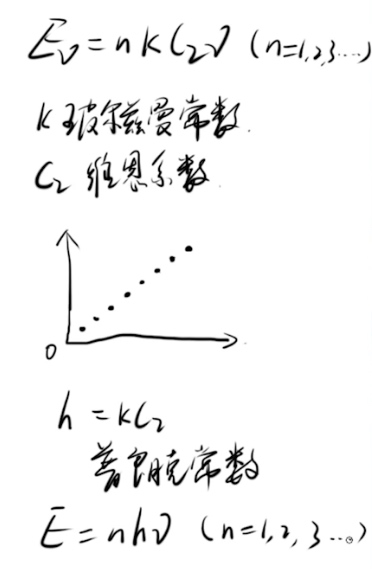 Eν = nkC₂ν (n=1,2,3...)
k 玻尔兹曼常数
C₂ 维恩系数
0
h = kC₂
普朗克常数
E = nhν (n=1,2,3...)